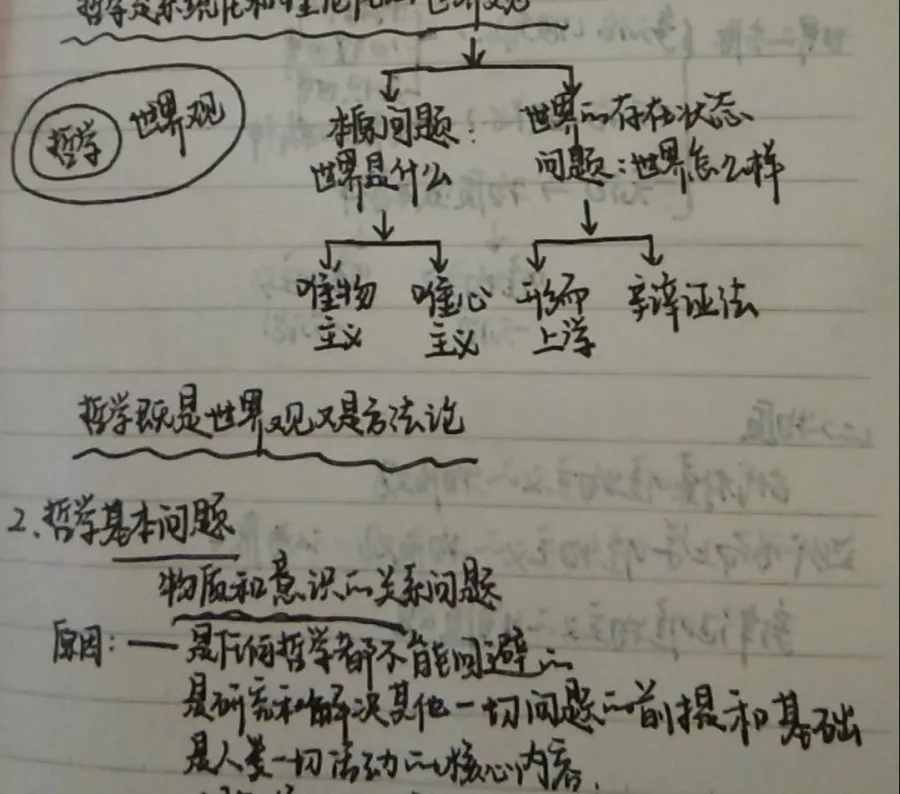 哲学是系统化和理论化的世界观
哲学 世界观
本原问题: 世界的存在状态
世界是什么 问题:世界怎么样
唯物 唯心 形而 辩证法
主义 主义 上学
哲学既是世界观又是方法论
2、哲学基本问题
物质和意识的关系问题
原因:一 是任何哲学都不能回避的
是研究和解决其他一切问题的前提和基础
是人类一切活动的核心内容.